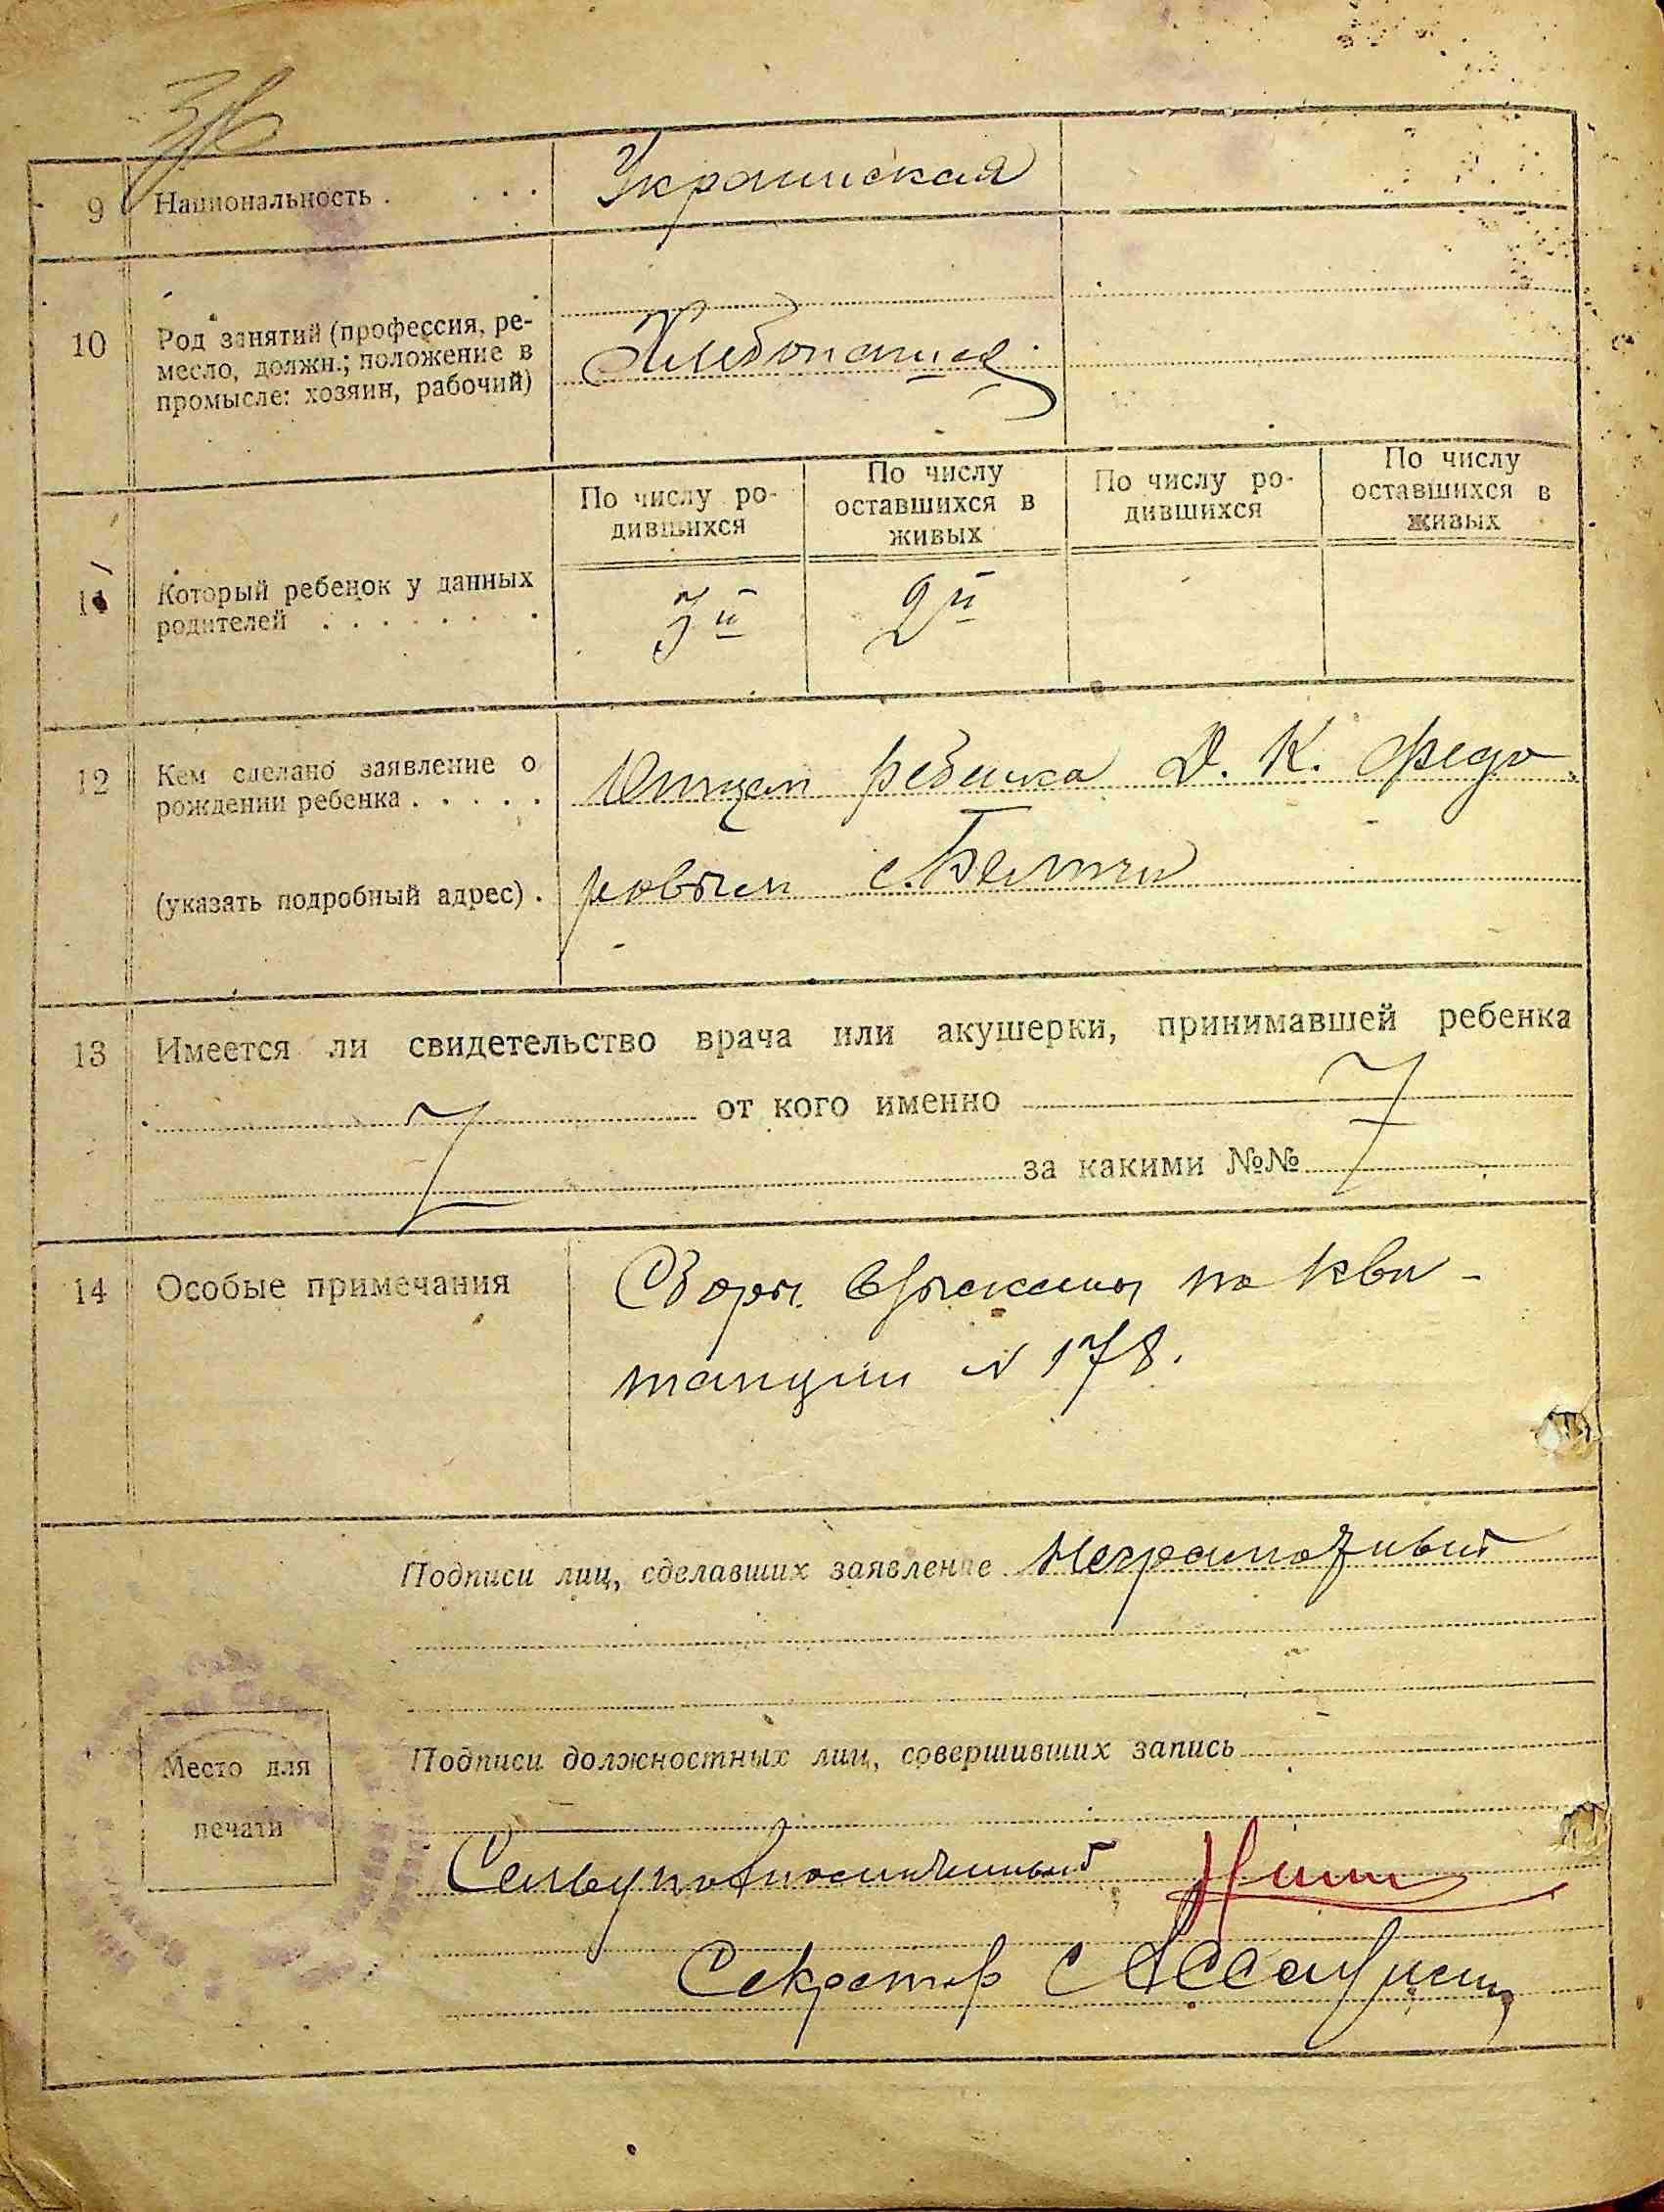 9 Национальность . . . Украинская
10 Род занятий (профессия, ре-
месло, должн.; положение в
промысле: хозяин, рабочий)
Хлебопашец
По числу ро-
дившихся
По числу
оставшихся в
живых
По числу ро-
дившихся
По числу
оставшихся в
живых
11 Который ребенок у данных
родителей . . . . . . . .
3й 2й
12 Кем сделано заявление о
рождении ребенка . . . . .
Отцом ребенка Д. К. Федо
(указать подробный адрес) . ровым с.
13 Имеется ли свидетельство врача или акушерки, принимавшей ребенка
от кого именно
за какими №№
14 Особые примечания
Сборы взысканы по кви-
танции N 178.
Подписи лиц, сделавших заявление Неграмотный
Подписи должностных лиц, совершивших запись
Место для
печати
Сельуполномоченный
Секретарь